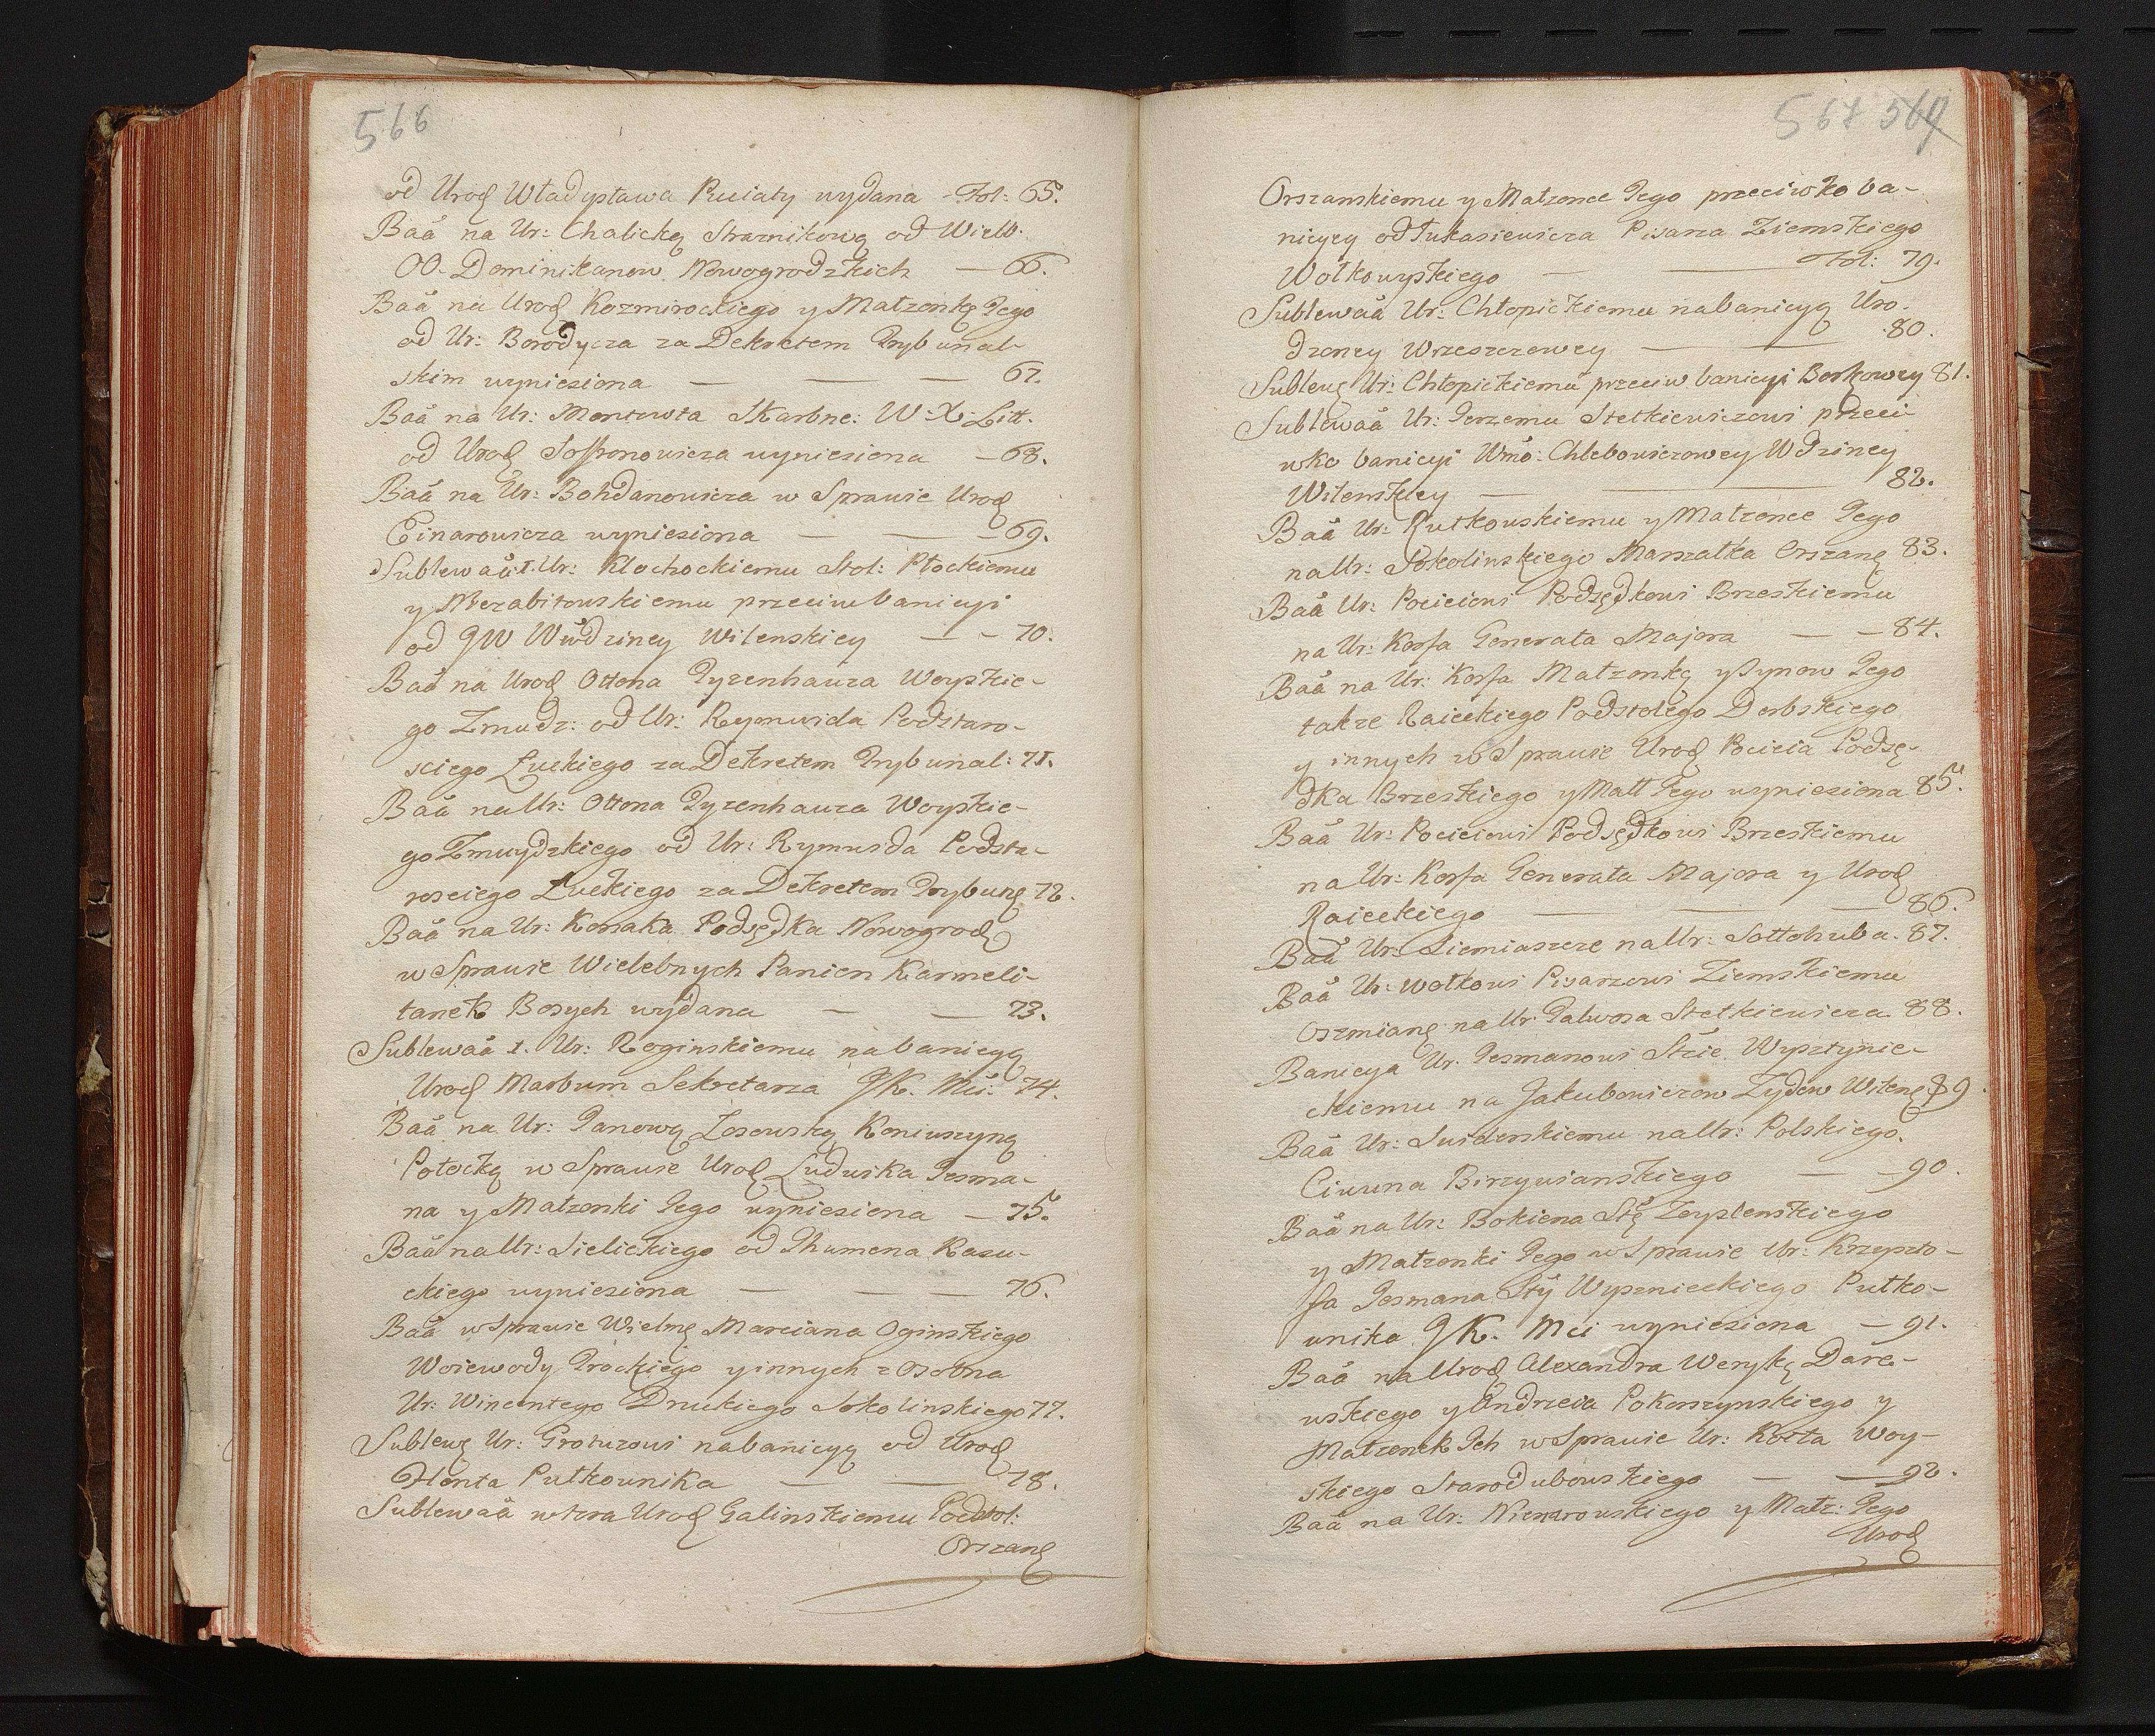 566
od Urod Władysława Puciaty wydana - Fol: 65.
Baa na Ur: Chalicką Straznikową od Wielb:
OO. Dominikanow Nowogrodzkich — 66.
Baa na Urod Kozmirockiego y Matzonkę Jego
od Ur: Borodycza za Dekretem Trybunal-
skim wyniesiona — — — 67.
Baa na Ur: Montowta Skarbne: W. X. Litt.
od Urod Sosponowicza wyniesiona — 68.
Baa na Ur: Bohdanowicza w Sprawie Urod
Einarowicza wyniesiona — — 69.
Sublewaa I. Ur: Klochockiemu Stol: Płockiemu
y Mierzabitowskiemu przeciw banicyi
od JW Wwdziney Wilenskiey — - 70.
Baa na Urod Ottona Tyzenhauza Woyskie-
go Zmudz: od Ur: Rymwida Podstaro-
sciego Łuckiego za Dekretem Trybunal: 71.
Baa na Ur: Ottona Tyzenhauza Woyskie-
go Zmuydzkiego od Ur: Rymwida Podsta-
rosciego Łuckiego za Dekretem Trybun 72.
Baa na Ur: Korsaka Podsędka Nowogrod
w Sprawie Wielebnych Panien Karmeli-
tanek Bosych wydana — — 73.
Sublewaa 1. Ur: Roginskiemu na banicyą
Urod Marbum Sekretarza JK. Mci: 74.
Baa na Ur: Janową Zosowską Koniuszyną
Potocką w Sprawie Urod Ludwika Jesma-
na y Matzonki Jego wyniesiona — 75.
Baa na Ur: Sielickiego od Ihumena Kazu-
ckiego wyniesiona — — — 76.
Baa w Sprawie Wielm Marciana Oginskiego
Woiewody Trockiego y innych z osobna
Ur: Wincentego Druckiego Sokolinskiego 77.
Sublew Ur: Grotuzowi na banicyą od Urod
Henta Putkownika — — 78.
Sublewaa wtora Urod Galinskiemu Podstol:
Orszan
567 569
Orszanskiemu y Matzonce Jego przeciwko ba-
nicyey od Łukasiewicza Pisarza Ziemskiego
Wołkowyskiego — — Fol: 79.
Sublewaa Ur: Chłopickiemu na banicyą Uro-
dzoney Wrzeszczowey — 80.
Sublew Ur: Chłopickiemu przeciw banicyi Borkowey 81.
Sublewaa Ur: Jerzemu Stetkiewiczowi przeci-
wko banicyi Wmo: Chlebowiczowey Wdziney
Wilenskiey — — 82.
Baa Ur: Rutkowskiemu y Matzonce Jego
na Ur: Sokolinskiego Marszałka Orszan 83.
Baa Ur: Pocieiowi Podsędkowi Brzeskiemu
na Ur: Korfa Generała Majora — — 84.
Baa na Ur: Korfa Matzonkę y Synow Jego
takze Raieckiego Podstolego Derbskiego
y innych w Sprawie Urod Pocieia Podsę-
dka Brzeskiego y Matt Jego wyniesiona 85.
Baa Ur: Pocieiowi Podsędkowi Brzeskiemu
na Ur: Korfa Generała Majora y Urod
Raieckiego — — — 86.
Baa Ur: Siemiaszce na Ur: Sottohuba. 87.
Baa Ur: Wołkowi Pisarzowi Ziemskiemu
Oszmian na Ur. Jalwosza Stetkiewicza 88.
Banicya Ur. Jesmanowi Stcie Wysztynie-
ckiemu na Jakubowiczow Zydow Wilen 89.
Baa Ur: Swiderskiemu na Ur: Polskiego.
Ciwuna Birzynianskiego — - 90.
Baa na Ur: Bokiena Stę Zeyplenskiego
y Matzonki Jego w Sprawie Ur: Krzyszto-
fa Jesmana Sty Wysznieckiego Putko-
wnika JK. Mci wyniesiona — 91.
Baa na Urod Alexandra Werykę Dare-
wskiego y Andrzeia Pokorszynskiego y
Matzonek Ich w Sprawie Ur: Kotta Woy-
skiego Starodubowskiego — — 92.
Baa na Ur: Niemirowskiego y Matz: Jego
Urod